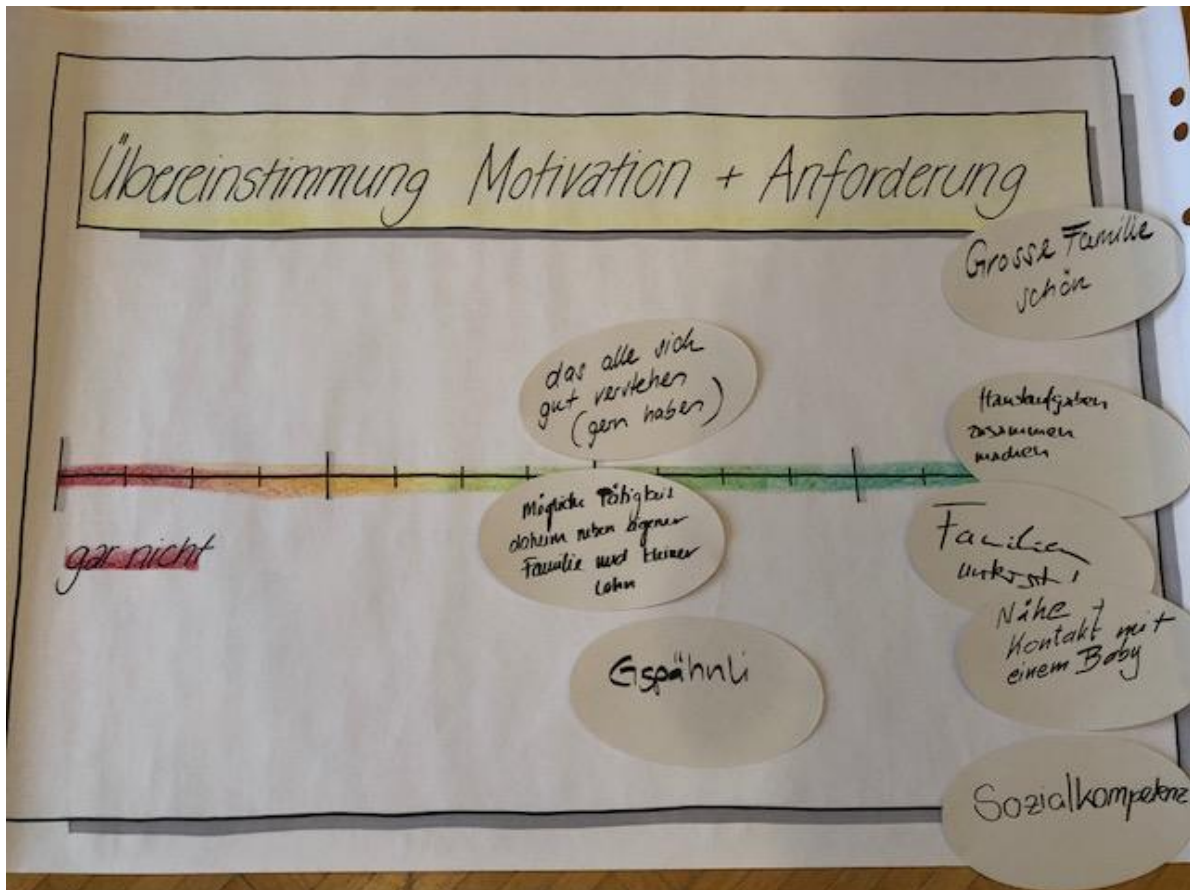 Übereinstimmung Motivation + Anforderung
Grosse Familie
schön
das alle sich
gut verstehen
(gern haben)
Hausaufgaben
zusammen
machen
Mögliche Tätigkeit
daheim neben eigener
Familie und kleiner
Lohn
gar nicht
Familien
Nähe +
Kontakt mit
einem Baby
Gspähnli
Sozialkompetenz